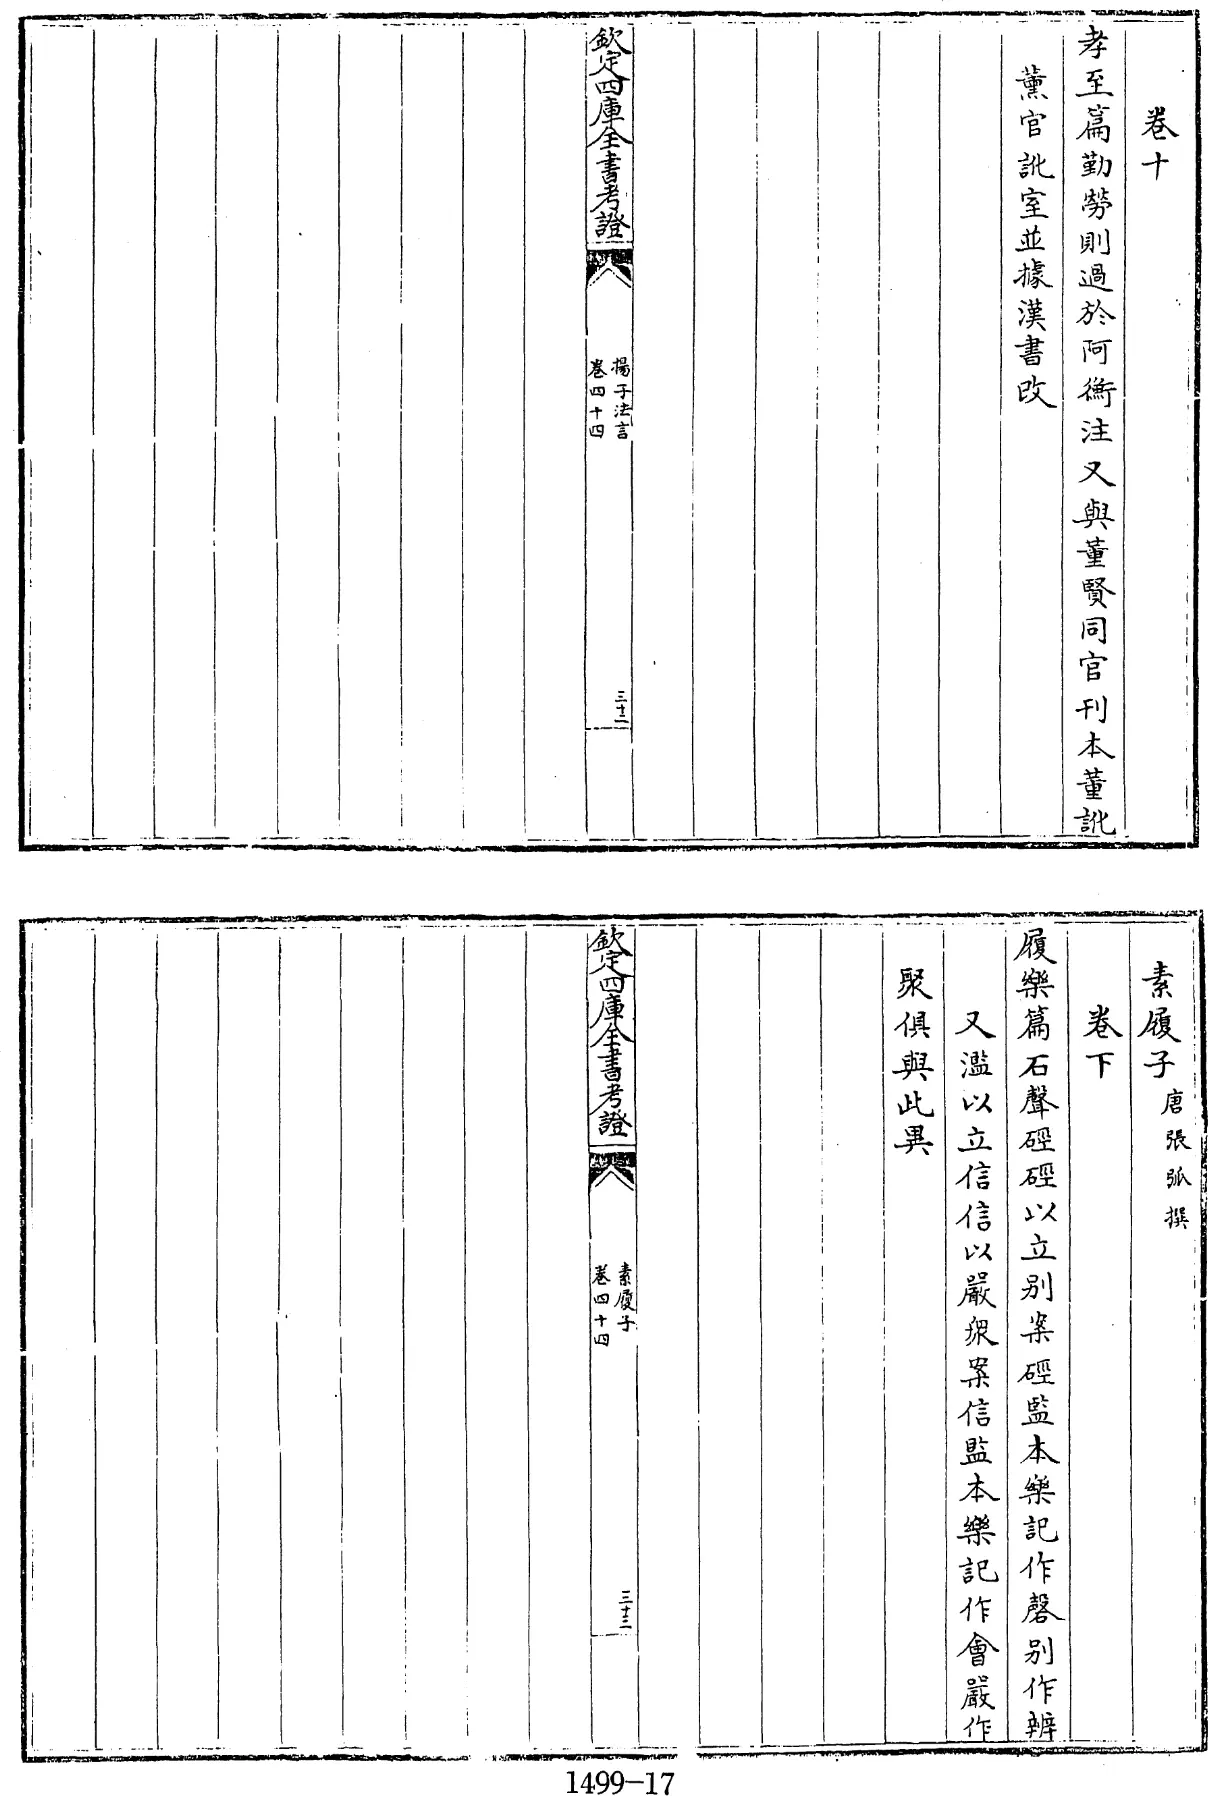 卷十
孝至篇勤勞則過於阿衡注又與董賢同官刊本董訛
薰官訛室並據漢書改
欽定四庫全書考證
揚子法言
卷四十四
三十二
素履子 唐張弧撰
卷下
履樂篇石聲硜硜以立别案硜監本樂記作磬别作辨
又濫以立信信以嚴眾案信監本樂記作會嚴作
聚俱與此異
欽定四庫全書考證
素履子
卷四十四
三十三
1499-17